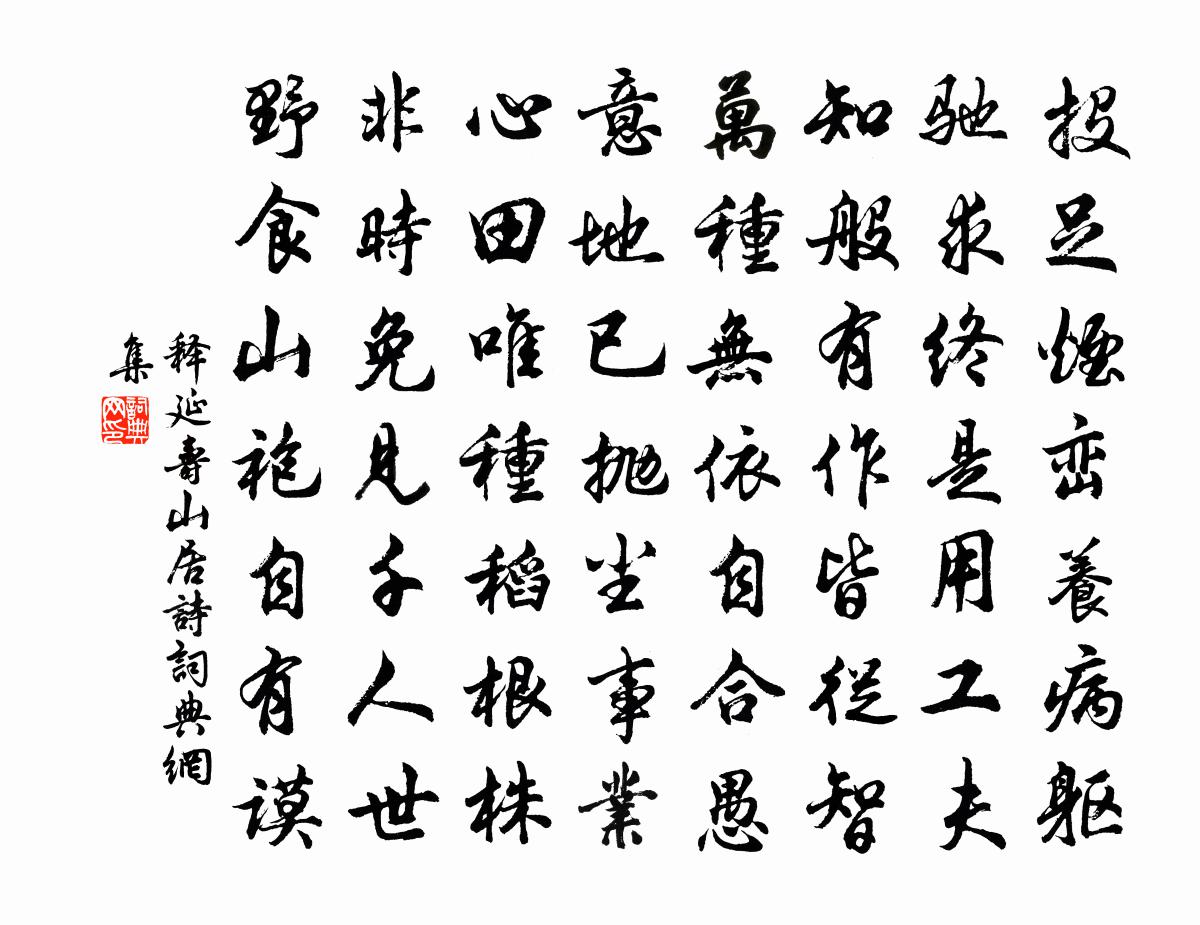 投足煙巒養病軀
驰求终是用工夫
知般有作皆從智
萬種無依自合愚
意地已抛尘事業
心田唯種稻根株
非時免見千人世
野食山袍自有謨
释延壽山居詩詞典網
集
詞典网印